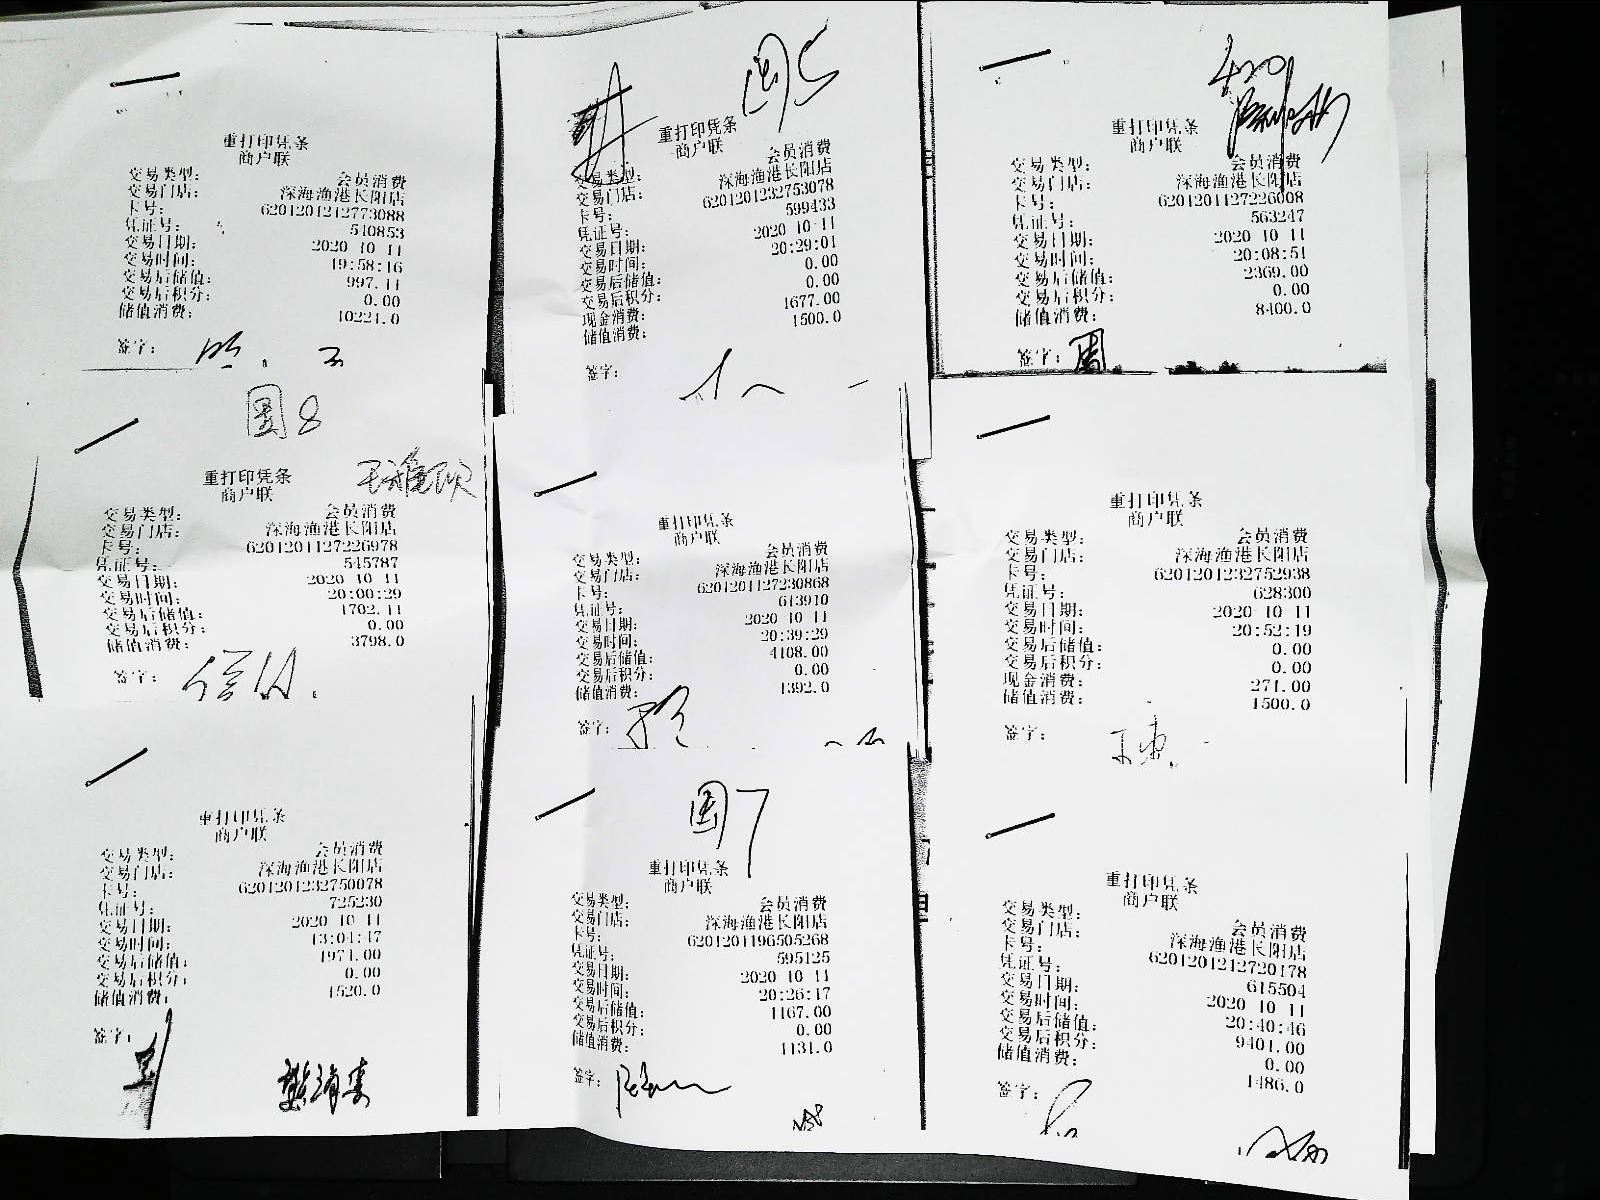 重打印凭条
商户联
交易类型: 会员消费
交易门店: 深海渔港长阳店
卡号: 6201201212773088
凭证号: 540853
交易日期: 2020 10 11
交易时间: 19:58:16
交易后储值: 997.11
交易后积分: 0.00
储值消费: 10221.0
签字:
圆5
重打印凭条
商户联
交易类型: 会员消费
交易门店: 深海渔港长阳店
卡号: 6201201232753078
凭证号: 599433
交易日期: 2020 10 11
交易时间: 20:29:01
交易后储值: 0.00
交易后积分: 0.00
现金消费: 1677.00
储值消费: 1500.0
签字:
重打印凭条
商户联
交易类型: 会员消费
交易门店: 深海渔港长阳店
卡号: 6201201127226008
凭证号: 563247
交易日期: 2020 10 11
交易时间: 20:08:51
交易后储值: 2369.00
交易后积分: 0.00
储值消费: 8400.0
签字: 周
圆8
重打印凭条
商户联
交易类型: 会员消费
交易门店: 深海渔港长阳店
卡号: 6201201127226978
凭证号: 545787
交易日期: 2020 10 11
交易时间: 20:00:29
交易后储值: 1702.11
交易后积分: 0.00
储值消费: 3798.0
签字:
重打印凭条
商户联
交易类型: 会员消费
交易门店: 深海渔港长阳店
卡号: 6201201127230868
凭证号: 613910
交易日期: 2020 10 11
交易时间: 20:39:29
交易后储值: 4108.00
交易后积分: 0.00
储值消费: 1392.0
签字:
重打印凭条
商户联
交易类型: 会员消费
交易门店: 深海渔港长阳店
卡号: 6201201232752938
凭证号: 628300
交易日期: 2020 10 11
交易时间: 20:52:19
交易后储值: 0.00
交易后积分: 0.00
现金消费: 271.00
储值消费: 1500.0
签字:
重打印凭条
商户联
交易类型: 会员消费
交易门店: 深海渔港长阳店
卡号: 6201201232750078
凭证号: 725230
交易日期: 2020 10 11
交易时间: 13:04:47
交易后储值: 1971.00
交易后积分: 0.00
储值消费: 1520.0
签字:
圆7
重打印凭条
商户联
交易类型: 会员消费
交易门店: 深海渔港长阳店
卡号: 6201201196505268
凭证号: 595125
交易日期: 2020 10 11
交易时间: 20:26:17
交易后储值: 1167.00
交易后积分: 0.00
储值消费: 1131.0
签字:
重打印凭条
商户联
交易类型: 会员消费
交易门店: 深海渔港长阳店
卡号: 6201201212720178
凭证号: 615504
交易日期: 2020 10 11
交易时间: 20:40:46
交易后储值: 9401.00
交易后积分: 0.00
储值消费: 1486.0
签字: